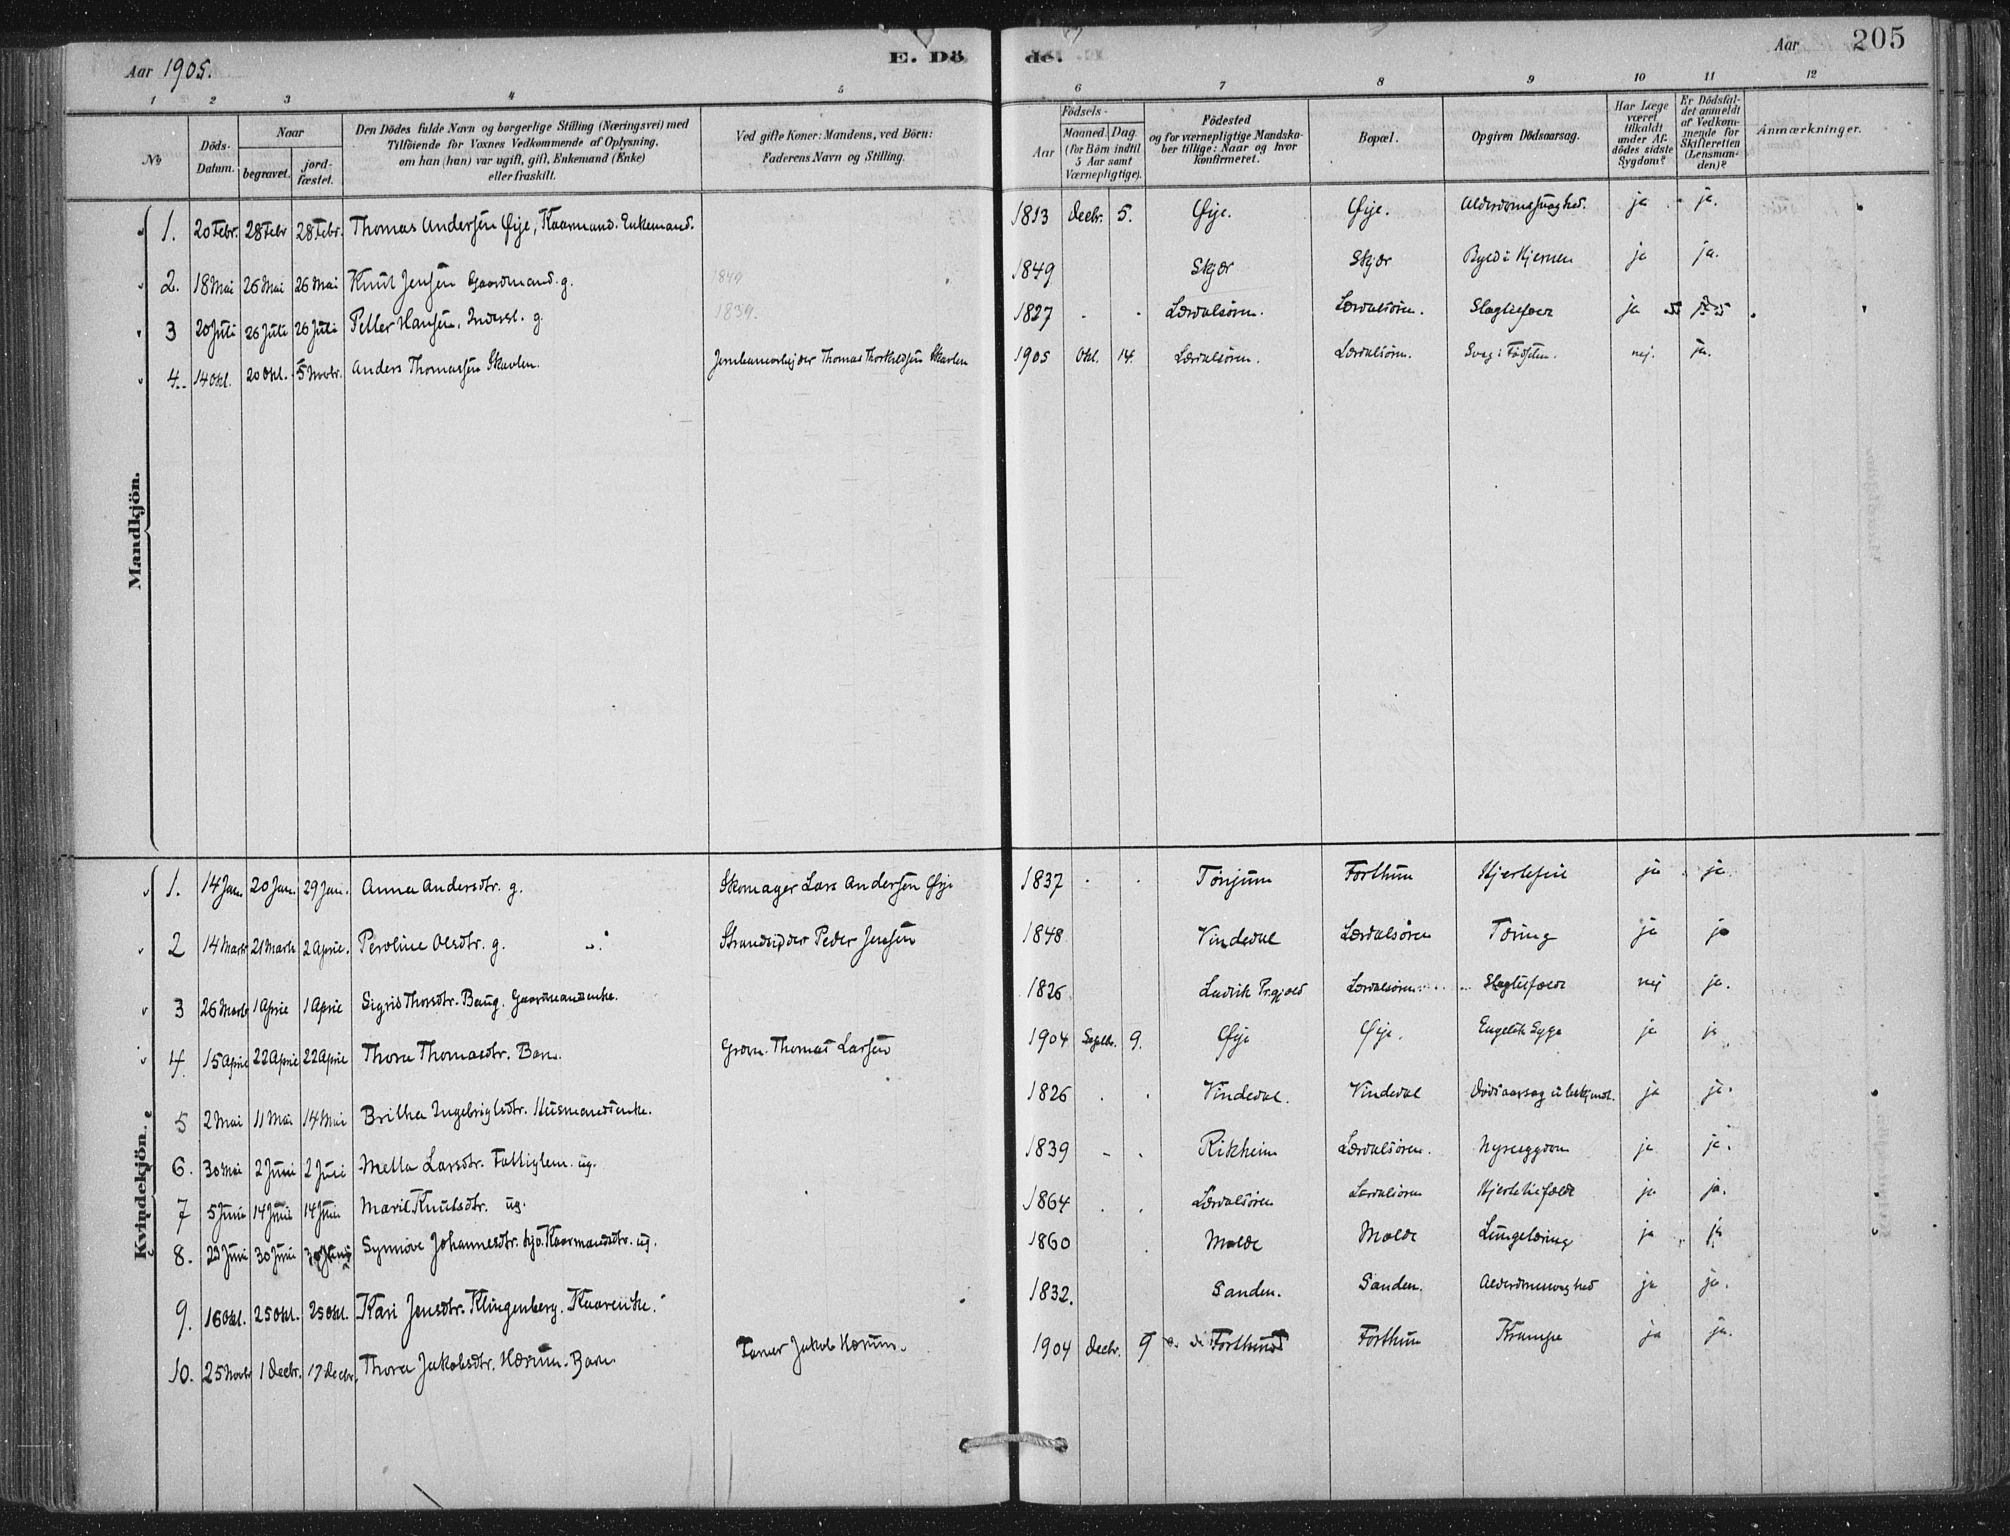 Aar 1905.
E. Dö
de.
Aar
205
1 2 3 4 5 6 7 8 9 10 11 12
No
Döds-Datum.
Naar
begravet.
jord-fæstet.
Den Dödes fulde Navn og borgerlige Stilling (Næringsvei) med
Tilföiende for Voxnes Vedkommende af Oplysning,
om han (hun) var ugift, gift, Enkemand (Enke)
eller fraskilt.
Ved gifte Koner: Mandens, ved Börn:
Faderens Navn og Stilling.
Födsels-
Aar
Maaned. Dag.
(for Börn indtil
5 Aar samt
Værnepligtige).
Födested
og for værnepligtige Mandska-
ber tillige: Naar og hvor
konfirmeret.
Bopæl.
Opgiven Dödsaarsag.
Har Læge
været
tilkaldt
under Af-
dödes sidste
Sygdom?
Er Dödsfal-
det anmeldt
af Vedkom-
mende for
Skifteretten
(Lensman-
den)?
Anmærkninger.
Mandkjön.
1. 20 Febr. 28 Febr 28 Febr. Thomas Andersen Øje, Kaarmand. Enkemand. 1813 Decbr. 5. Øje. Øje. Alderdomssvaghed. ja ja.
2. 18 Mai 26 Mai 26 Mai Knut Jensen Gaardmand. g. 1849 1849 Skjær Skjær Byld i Hjernen ja ja.
3 20 Juli 26 Juli 26 Juli Petter Hansen, Inderst. g. 1839. 1827 Lærdalsören. Lærdalsören. Slagtilfælde ja ja
4. 14 Okt. 20 Okt. 5 Novbr. Anders Thomassen Skavlen. Jernbanearbejder Thomas Thorkildsen Skavlen 1905 Okt. 14. Lærdalsören. Lærdalsören. Svag i Fødslen. nej. ja.
Kvindekjön.
1. 14 Jan. 20 Jan. 29 Jan. Anna Andersdtr. g. Skomager Lars Andersen Øje 1837 Tönjum Forthun Hjertefeil ja ja.
2 14 Marts 21 Marts 2 April. Peroline Olsdtr. g. Strandsidder Peder Jensen 1848 Vindedal Lærdalsören Tæring ja ja
3 26 Marts 1 April 1 April Sigrid Thorsdtr. Baug. Gaardmandsenke. 1826 Ludvik Prgjæld Lærdalsören Slagtilfælde nej ja.
4. 15 April 22 April 22 April Thora Thomasdtr. Barn. Grdm. Thomas Larsen 1904 Septbr. 9. Øje Øje. Engelsk Syge ja ja
5 2 Mai 11 Mai 14 Mai Britha Ingebrigtsdtr. Husmandsenke. 1826 Vindedal. Vindedal Dødsaarsag ubekjendt. ja ja.
6. 30 Mai 2 Juni 2 Juni Metta Larsdtr. Fattiglem. ug. 1839 Rikheim Lærdalsören. Nyresygdom ja ja.
7 5 Juni 14 Juni 14 Juni Marit Knutsdtr. ug. 1864 Lærdalsören Lærdalsören Hjertetilfælde ja ja.
8. 23 Juni 30 Juni 30 Juni Synnöve Johannesdtr. Kaarmandsdtr. ug. 1860 Molde Molde Lungetæring ja ja
9. 16 Okt. 25 Okt. 25 Okt. Kari Jensdtr. Klingenberg. Kaarenke. 1832. Sanden. Sanden. Alderdomssvaghed ja ja.
10. 25 Novbr 1 Decbr. 17 Decbr. Thora Jakobsdtr. Hærum. Barn. Garver Jakob Hærum. 1904 Decbr. 9 Forthun Forthun Krampe ja ja.